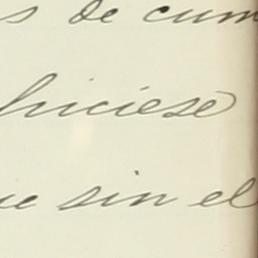 s de cum
hiciese
ue sin el